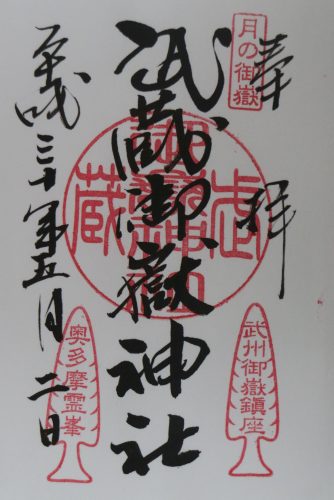 奉拝
月の御嶽
武蔵御嶽神社
武州御嶽鎮座
奥多摩霊峯
平成三十年五月二日